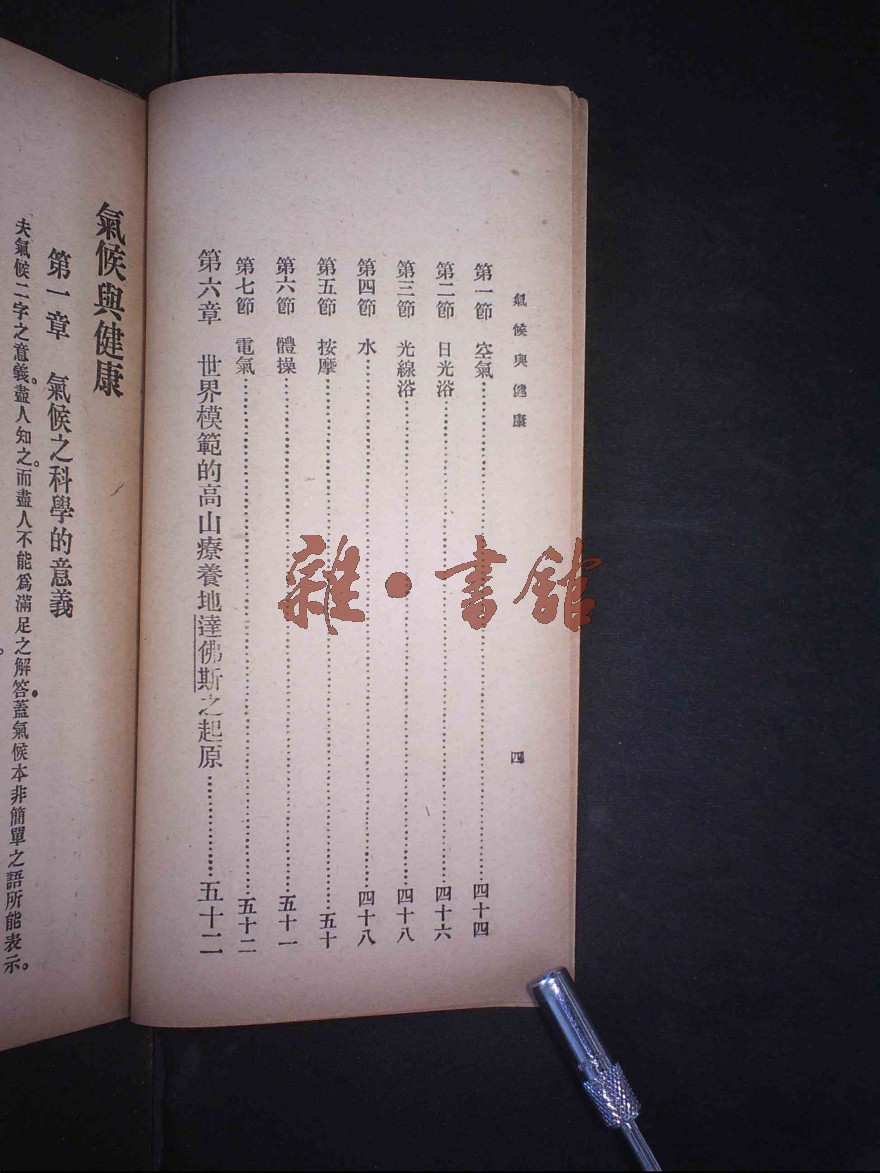 氣候與健康
四
第一節 空氣……四十四
第二節 日光浴……四十六
第三節 光線浴……四十八
第四節 水……四十八
第五節 按摩……五十
第六節 體操……五十一
第七節 電氣……五十二
第六章 世界模範的高山療養地達佛斯之起原……五十二
氣候與健康
第一章 氣候之科學的意義
夫氣候二字之意義。盡人知之。而盡人不能爲滿足之解答。蓋氣候本非簡單之語所能表示。
雜·書館